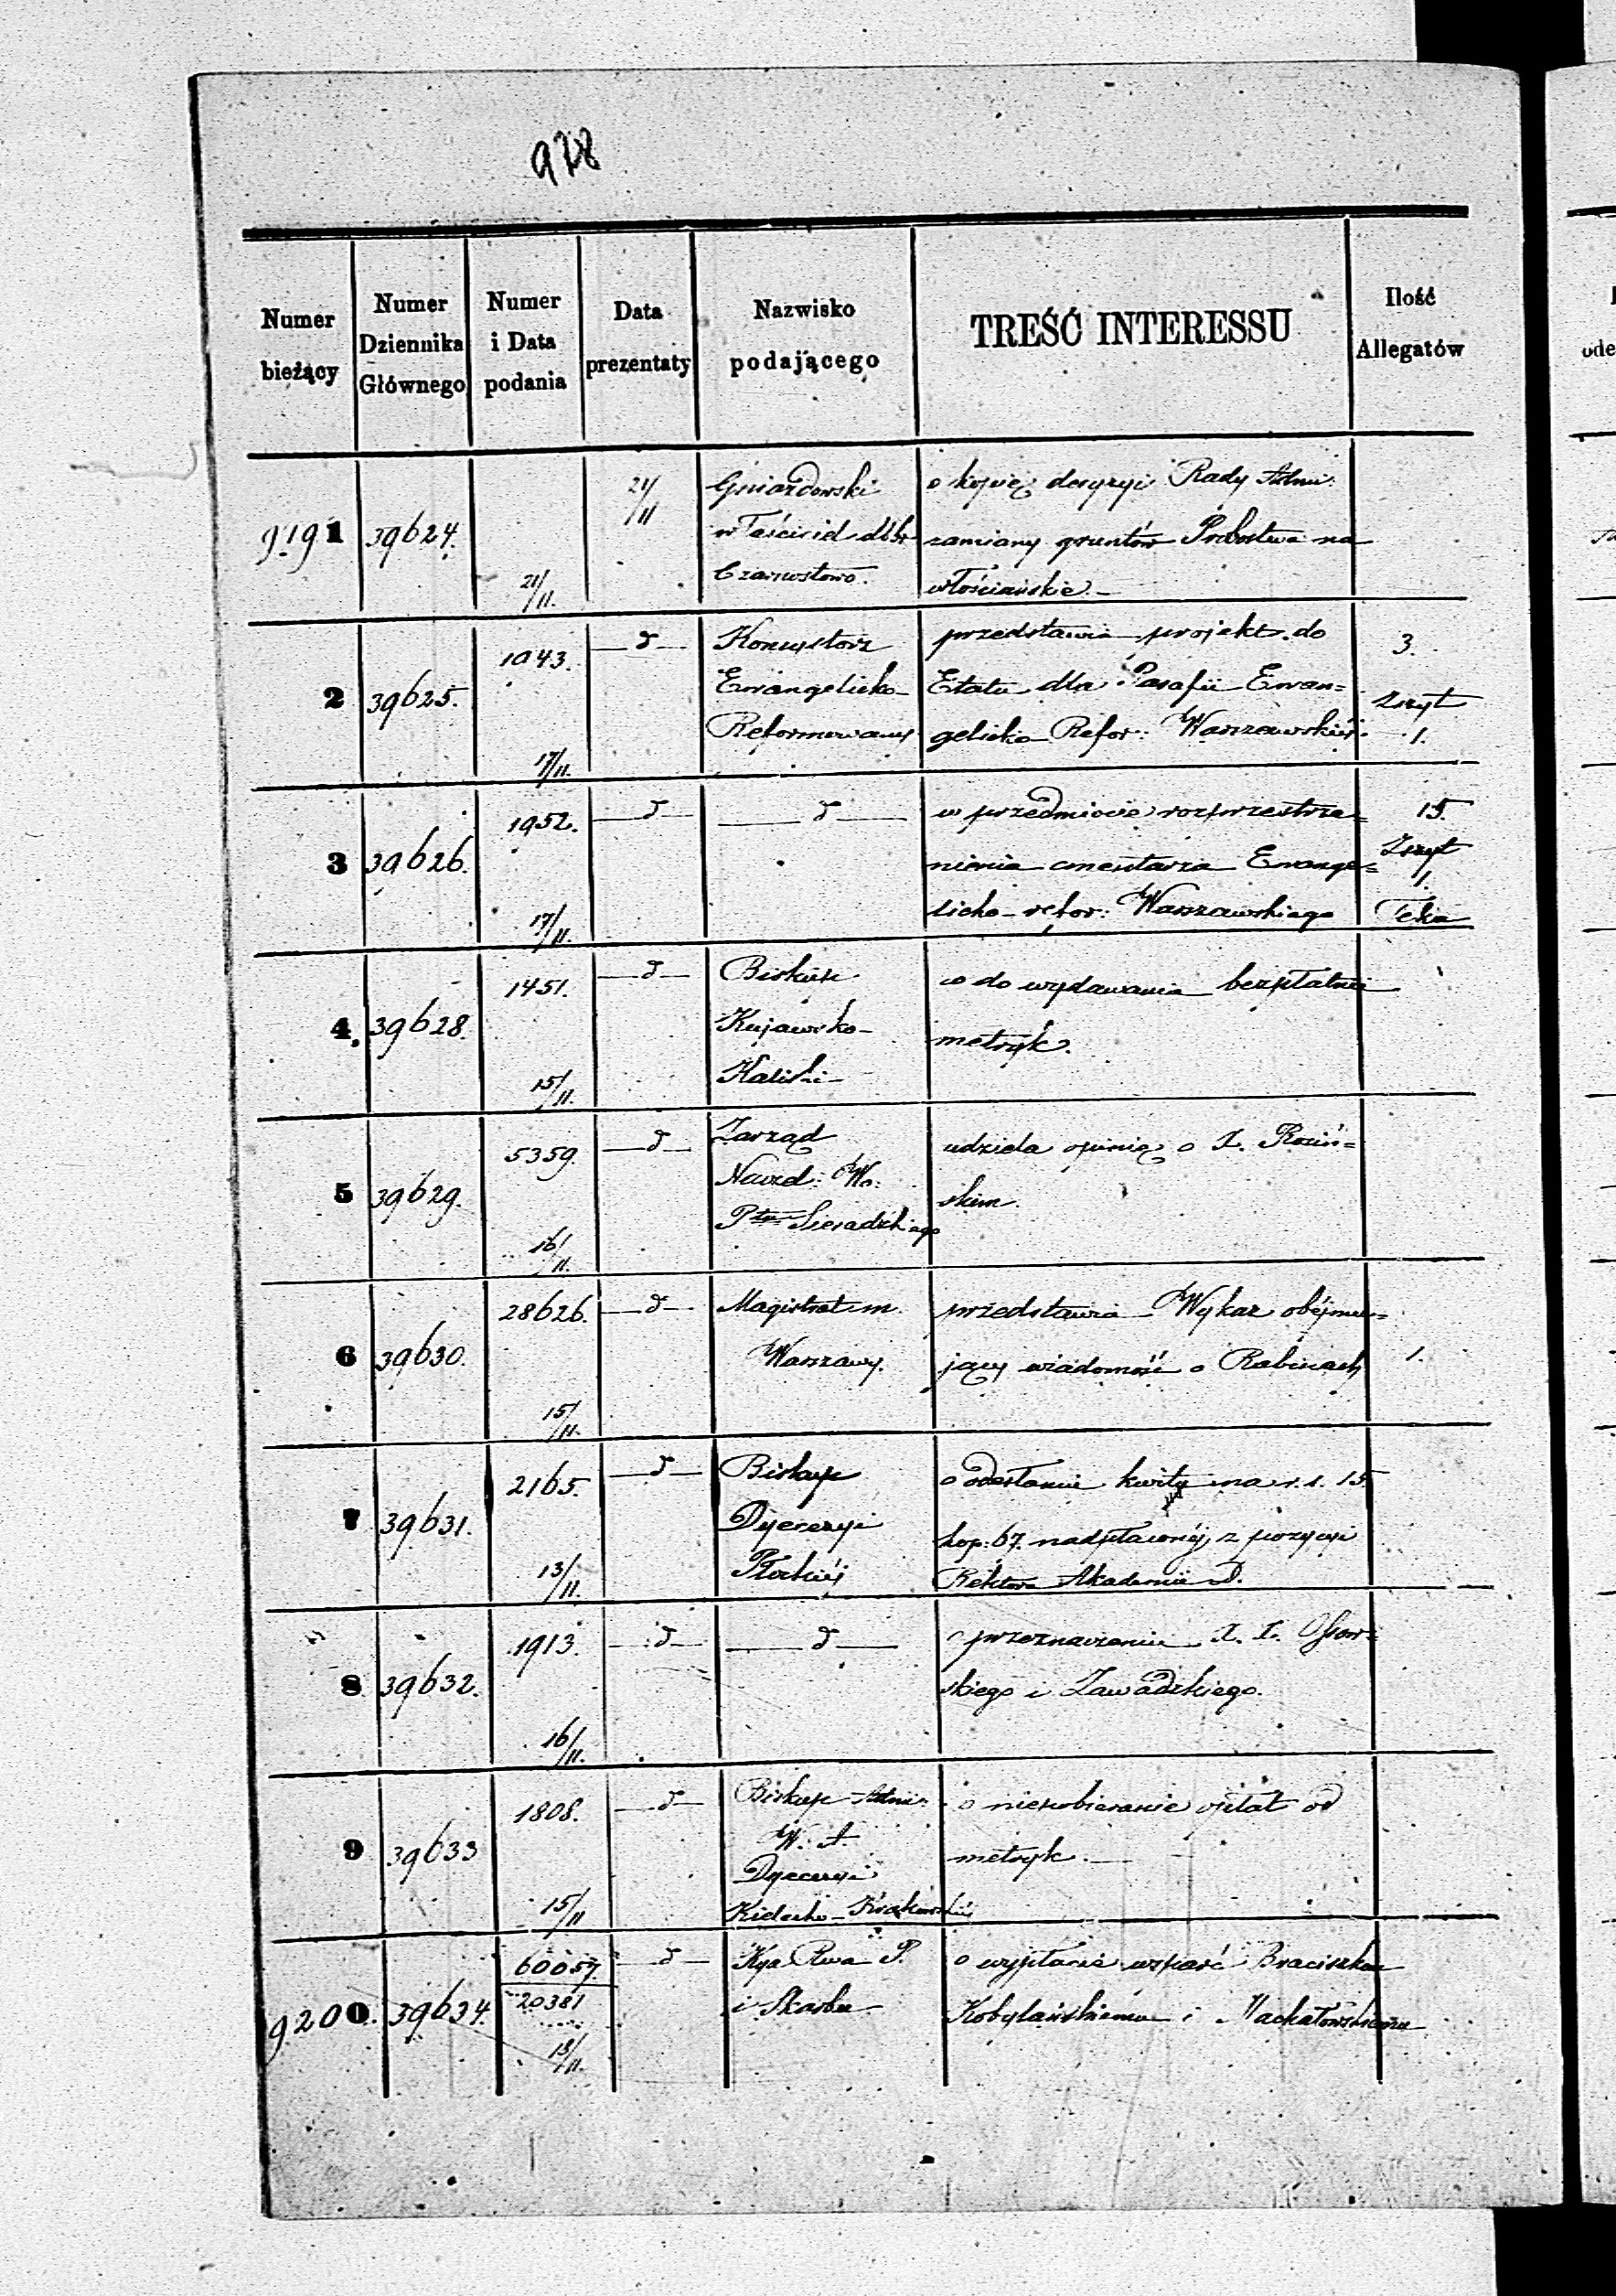 928
Numer bieżący
Numer Dziennika Głównego
Numer i Data podania
Data prezentaty
Nazwisko podającego
TREŚĆ INTERESSU
Ilość Allegatów
9191 39624. 21/11. 21/11
Gniazdowski
właściciel dóbr
Czarnostowo.
o kopię decyzyi Rady Admi:
zamiany gruntów Probostwa na
włościańskie.—
2 39625. 1043. 17/11. —d—
Konsystorz
Ewangelicko-
Reformowany
przedstawia projekt do
Etatu dla Parafii Ewan=
gelicko Refor: Warszawskiéj.
3.
Zszyt
1.
3 39626. 1952. 17/11. —d—
—d—
w przedmiocie rozprzestrze=
nienia cmentarza Ewange=
licko-refor: Warszawskiego
15.
Zszyt
1.
Teka
4. 39628. 1451. 15/11. —d—
Biskup
Kujawsko-
Kaliski-
co do wydawania bezpłatnie
metryk.
5 39629. 5359. 16/11. —d—
Zarząd
Naczel: Wo:
Ptu Sieradzkiego
udziela opinię o X. Rosiń=
skim.
6 39630. 28626. 15/11. —d—
Magistrat m.
Warszawy.
przedstawia Wykaz obéjmu=
jący wiadomość o Rabinach
1.
7 39631. 2165. 13/11. —d—
Biskup
Dyecezyi
Płockiéj
o odesłanie kwitu na r.s. 15.
kop: 67. nadpłaconéj z pozycyi
Rektora Akademii D.
8 39632. 1913. 16/11. —d—
—d—
o przeznaczeniu X. X. Ossow=
skiego i Zawadzkiego.
9 39633 1808. 15/11 —d—
Biskup Admi:
W. A.
Dyecezyi
Kielecko-Krakowskiéj
o niepobieranie opłat od
metryk.—
9200. 39634. 60057. 20381 13/11. —d—
Kya Rwa P.
i Skarbu
o wypłacie wsparć Braciszkom
Kobylańskiemu i